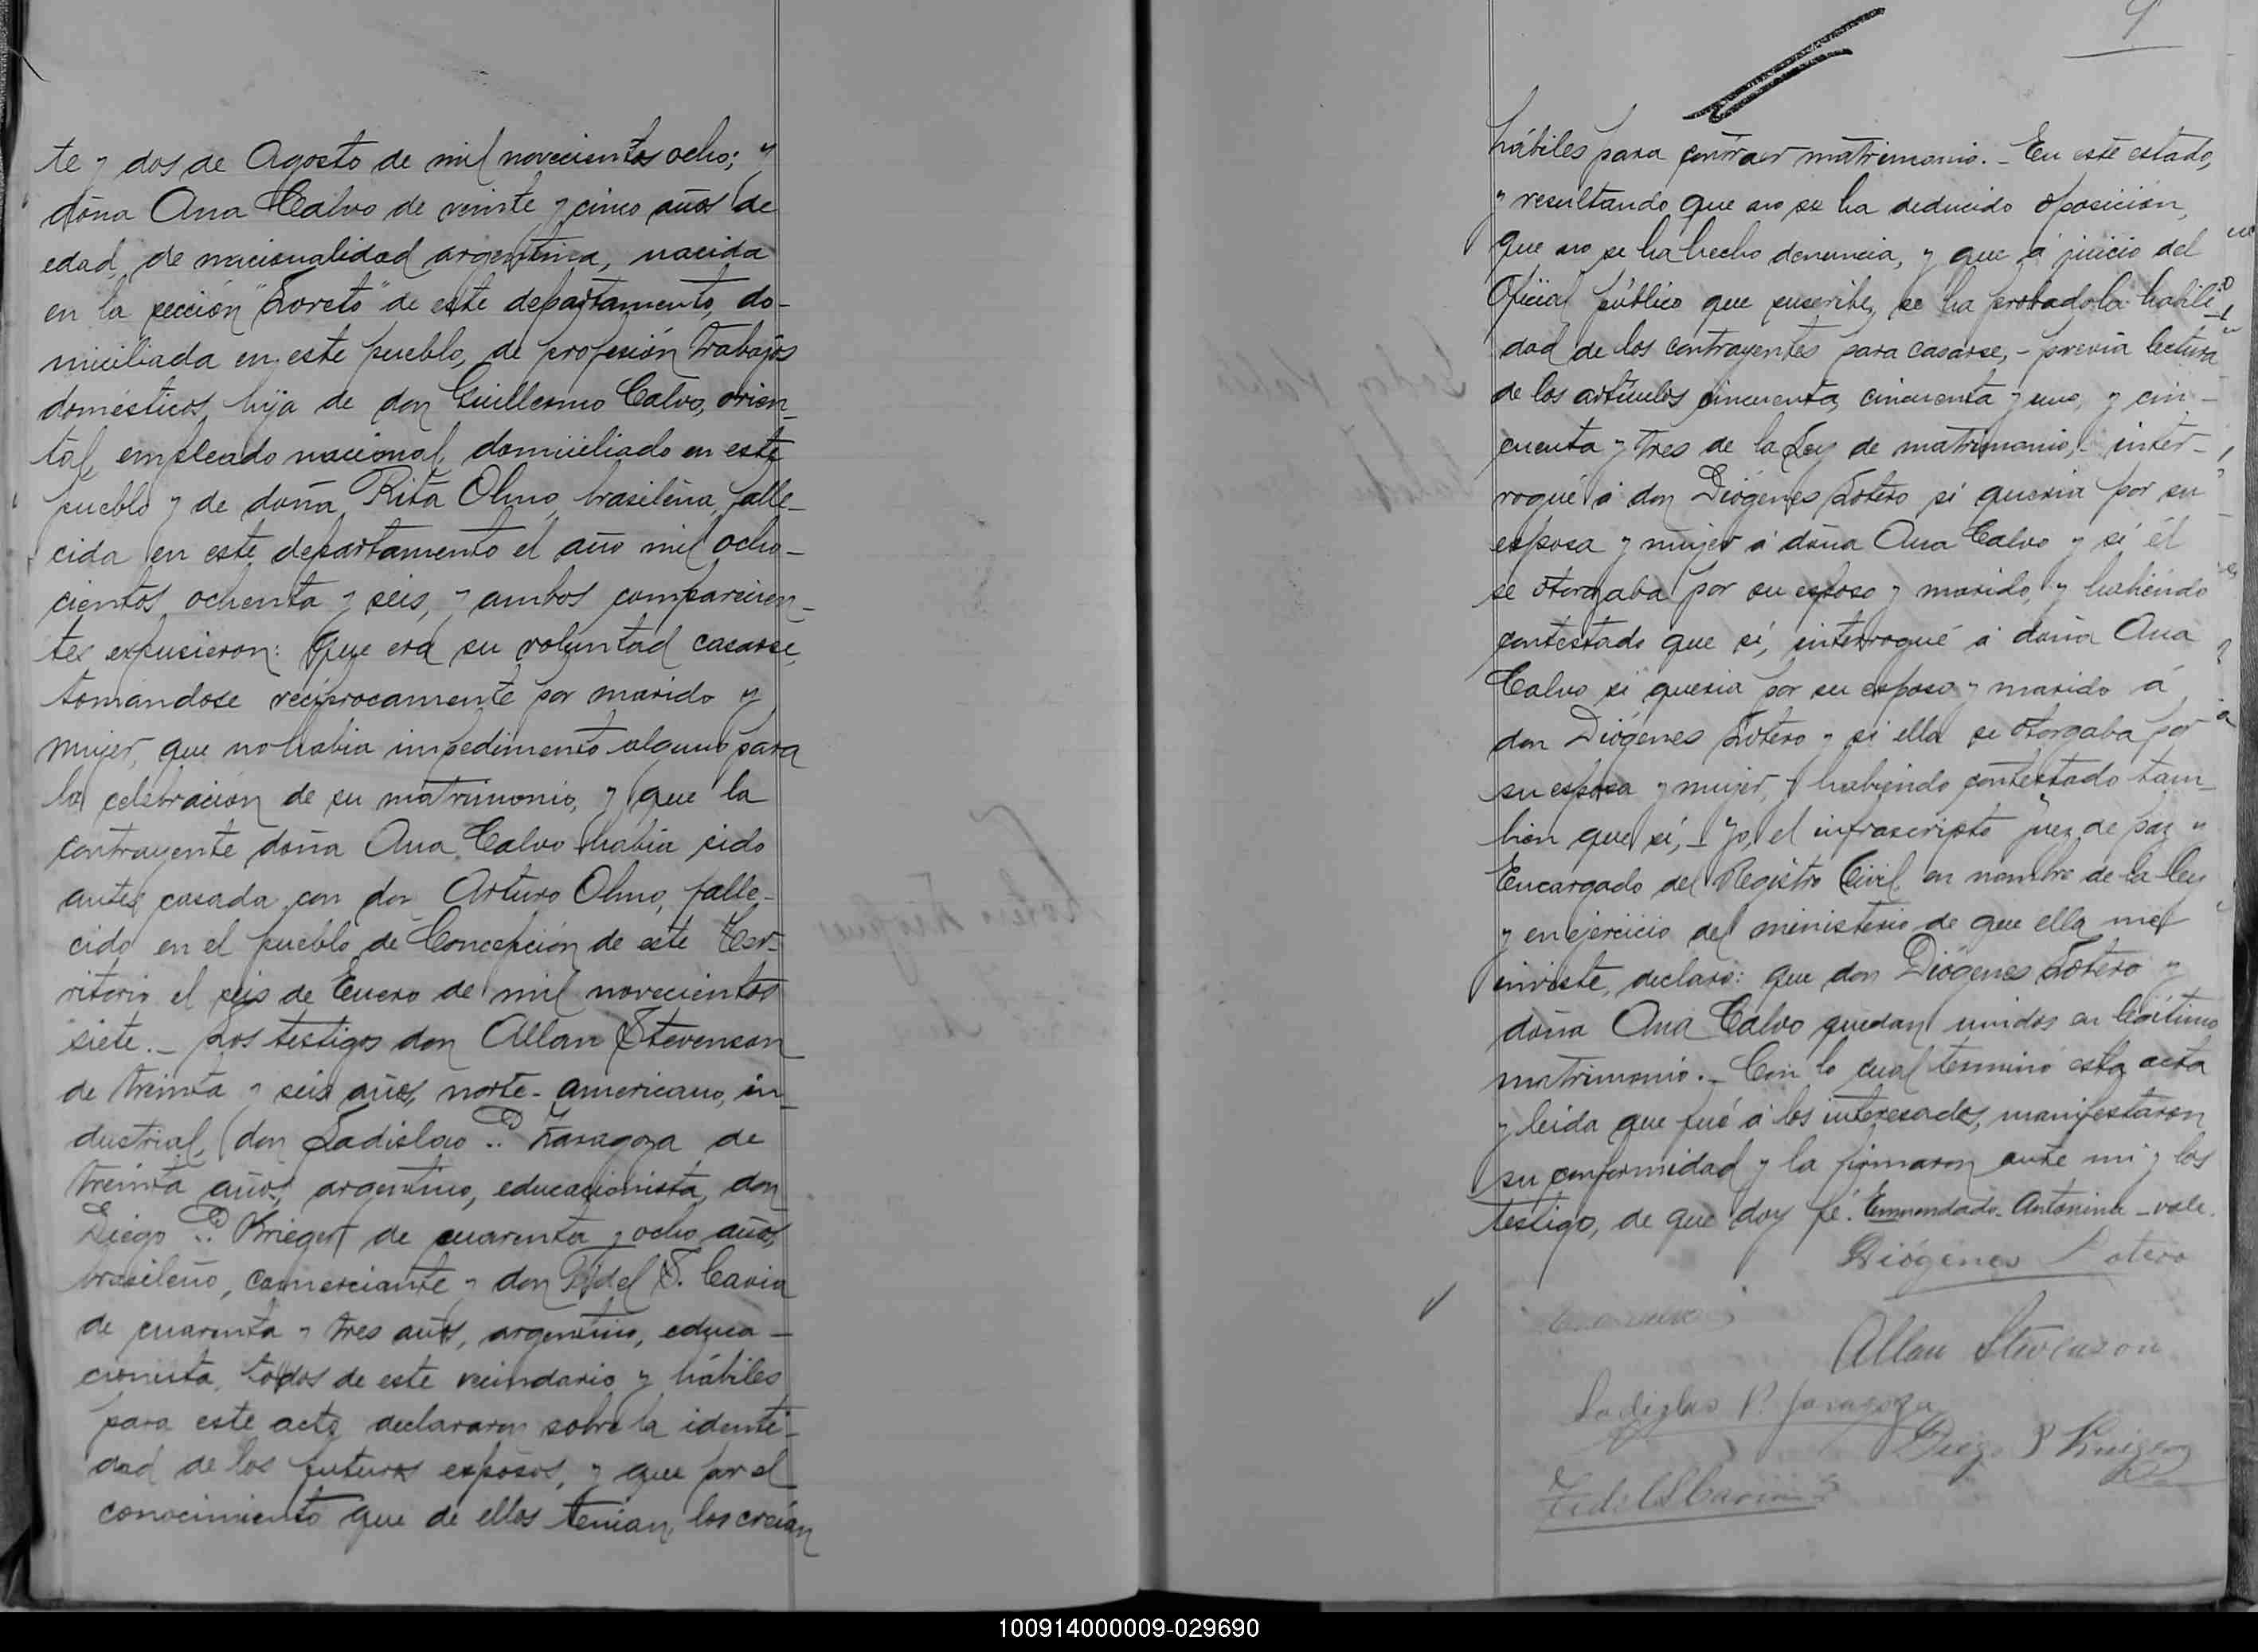 te y dos de Agosto de mil novecientos ocho; y
doña Ana Calvo de veinte y cinco años de
edad, de nacionalidad argentina, nacida
en la sección "Loreto" de este departamento, do-
miciliada en este pueblo, de profesión trabajos
domésticos, hija de don Guillermo Calvo, orien-
tal, empleado nacional, domiciliado en este
pueblo y de doña Rita Olmo, brasileña, falle-
cida en este departamento el año mil ocho-
cientos ochenta y seis, y ambos comparecien-
tes expusieron: Que era su voluntad casarse,
tomandose recíprocamente por marido y
mujer, que no habia impedimento alguno para
la celebración de su matrimonio, y que la
contrayente doña Ana Calvo había sido
antes casada con don Arturo Olmo, falle-
cido en el pueblo de Concepción de este Ter-
ritorio el seis de Enero de mil novecientos
siete. - Los testigos don Allan Stevenson
de treinta y seis años, norte-americano, in-
dustrial, don Ladislao P. Zaragoza de
treinta años, argentino, educacionista, don
Diego P. Krieger de cuarenta y ocho años,
brasileño, comerciante y don Fidel S. Cavia
de cuarenta y tres años, argentino, educa-
cionista, todos de este vecindario y hábiles
para este acto declararon sobre la identi-
dad de los futuros esposos, y que por el
conocimiento que de ellos tenian, los creían
9
hábiles para contraer matrimonio. - En este estado,
y resultando que no se ha deducido oposición,
que no se ha hecho denuncia, y que á juicio del
Oficial público que suscribe, se ha probado la habili-
dad de los contrayentes para casarse, - previa lectura
de los artículos cincuenta, cincuenta y uno, y cin-
cuenta y tres de la Ley de matrimonio, - inter-
rogué á don Diógenes Lotero si queria por su
esposa y mujer á doña Ana Calvo y si él
se otorgaba por su esposo y marido, y habiendo
contestado que sí, interrogué á doña Ana
Calvo si queria por su esposo y marido á
don Diógenes Lotero y si ella se otorgaba por
su esposa y mujer, y habiendo contestado tam-
bien que sí, - Yo, el infrascripto Juez de paz y
Encargado del Registro Civil, en nombre de la ley
y en ejercicio del ministerio de que ella me
inviste, declaro: que don Diógenes Lotero y
doña Ana Calvo quedan unidos en legítimo
matrimonio. - Con lo cual terminó esta acta
y leida que fué á los interesados, manifestaron
su conformidad y la firmaron ante mi y los
testigos, de que doy fé. Enmendado - Antonina - vale.
Diógenes Lotero
Allan Stevenson
Ladislao P. Zaragoza
Diego P Krieger
Fidel S Cavia
100914000009-029690